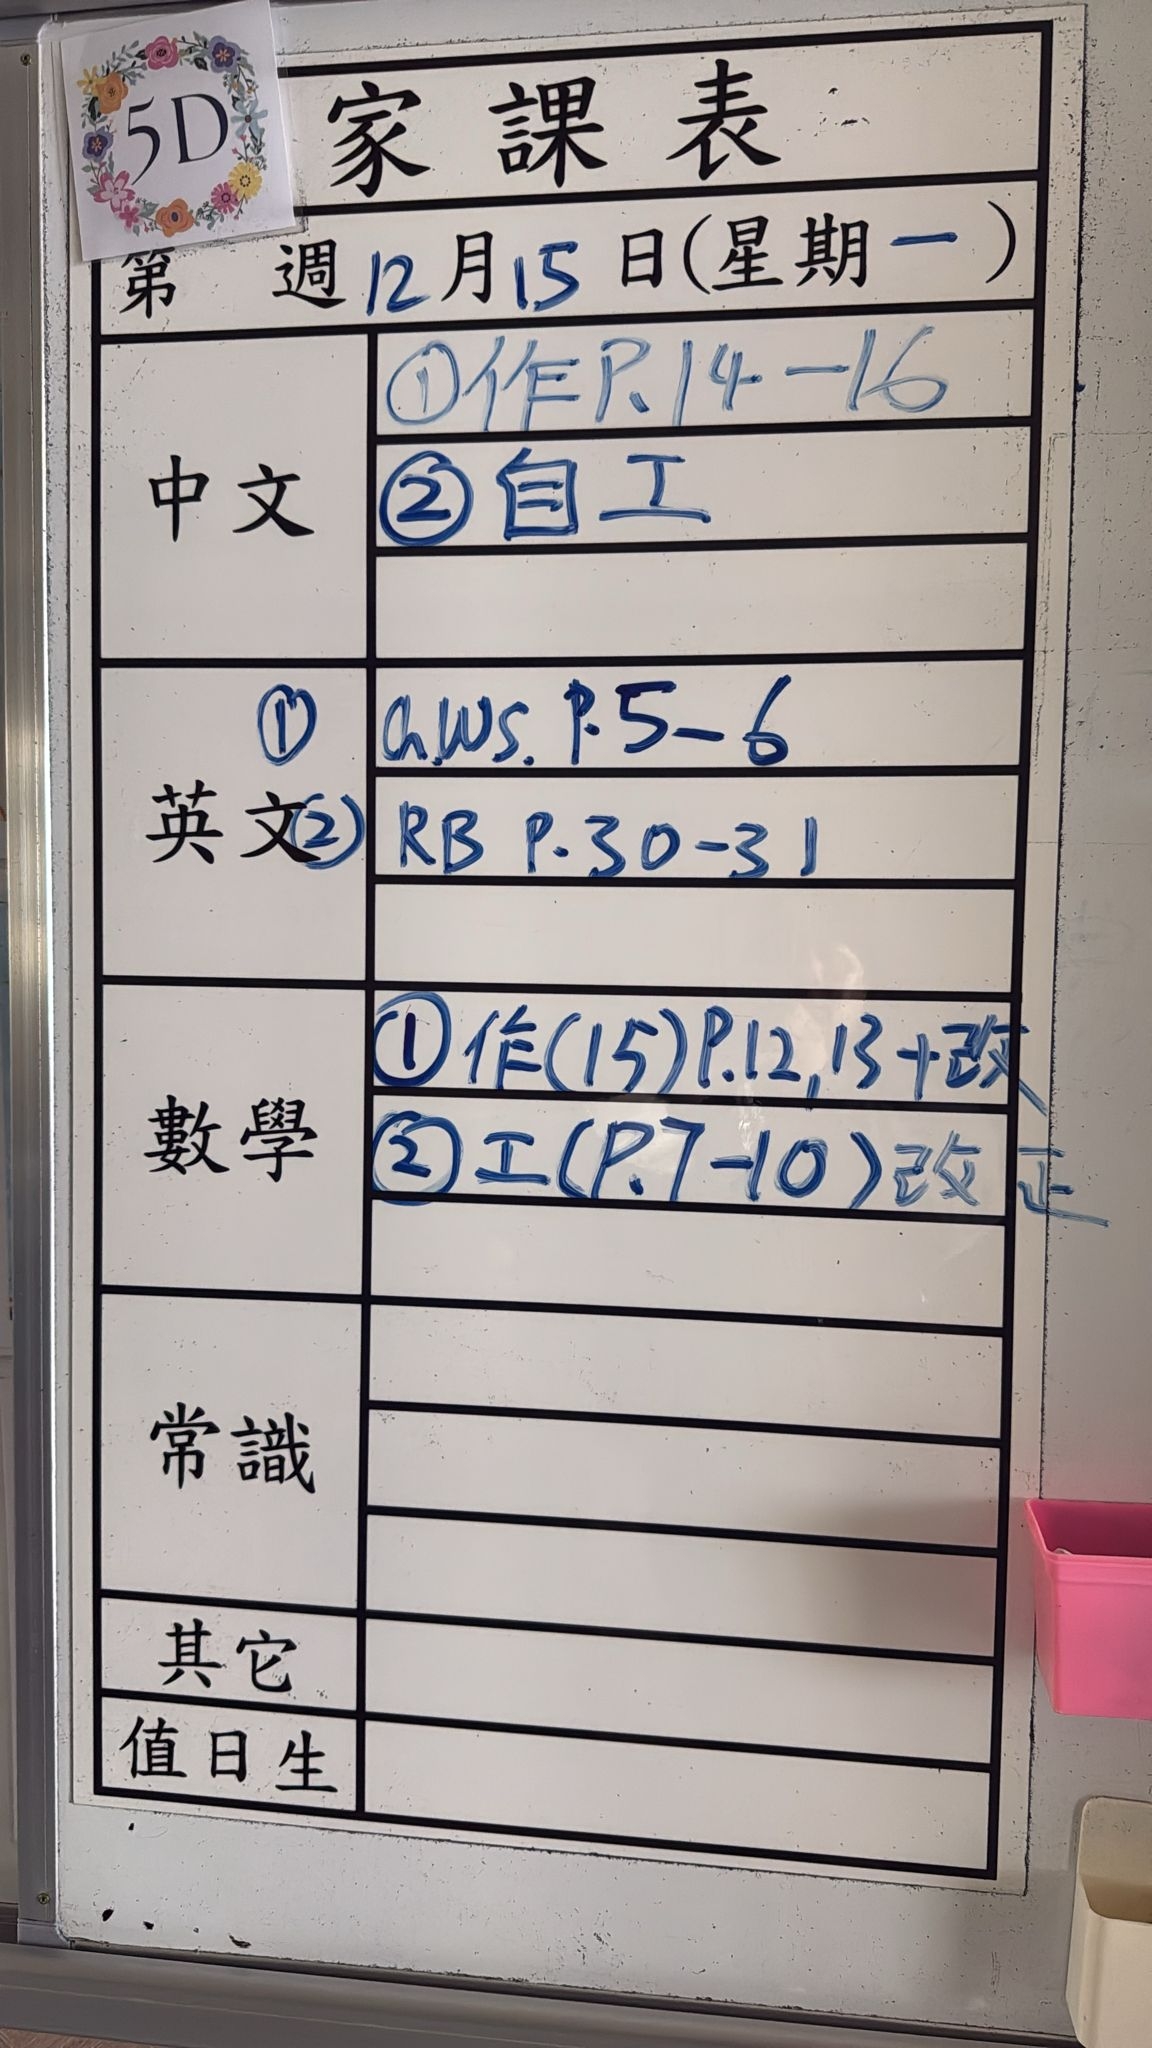 5D
家課表
第 週 12月15日(星期一)
中文
①作P.14-16
②自工
英文
① G.WS. P.5-6
② RB P.30-31
數學
①作(15)P.12,13+改
②工(P.7-10)改正
常識
其它
值日生